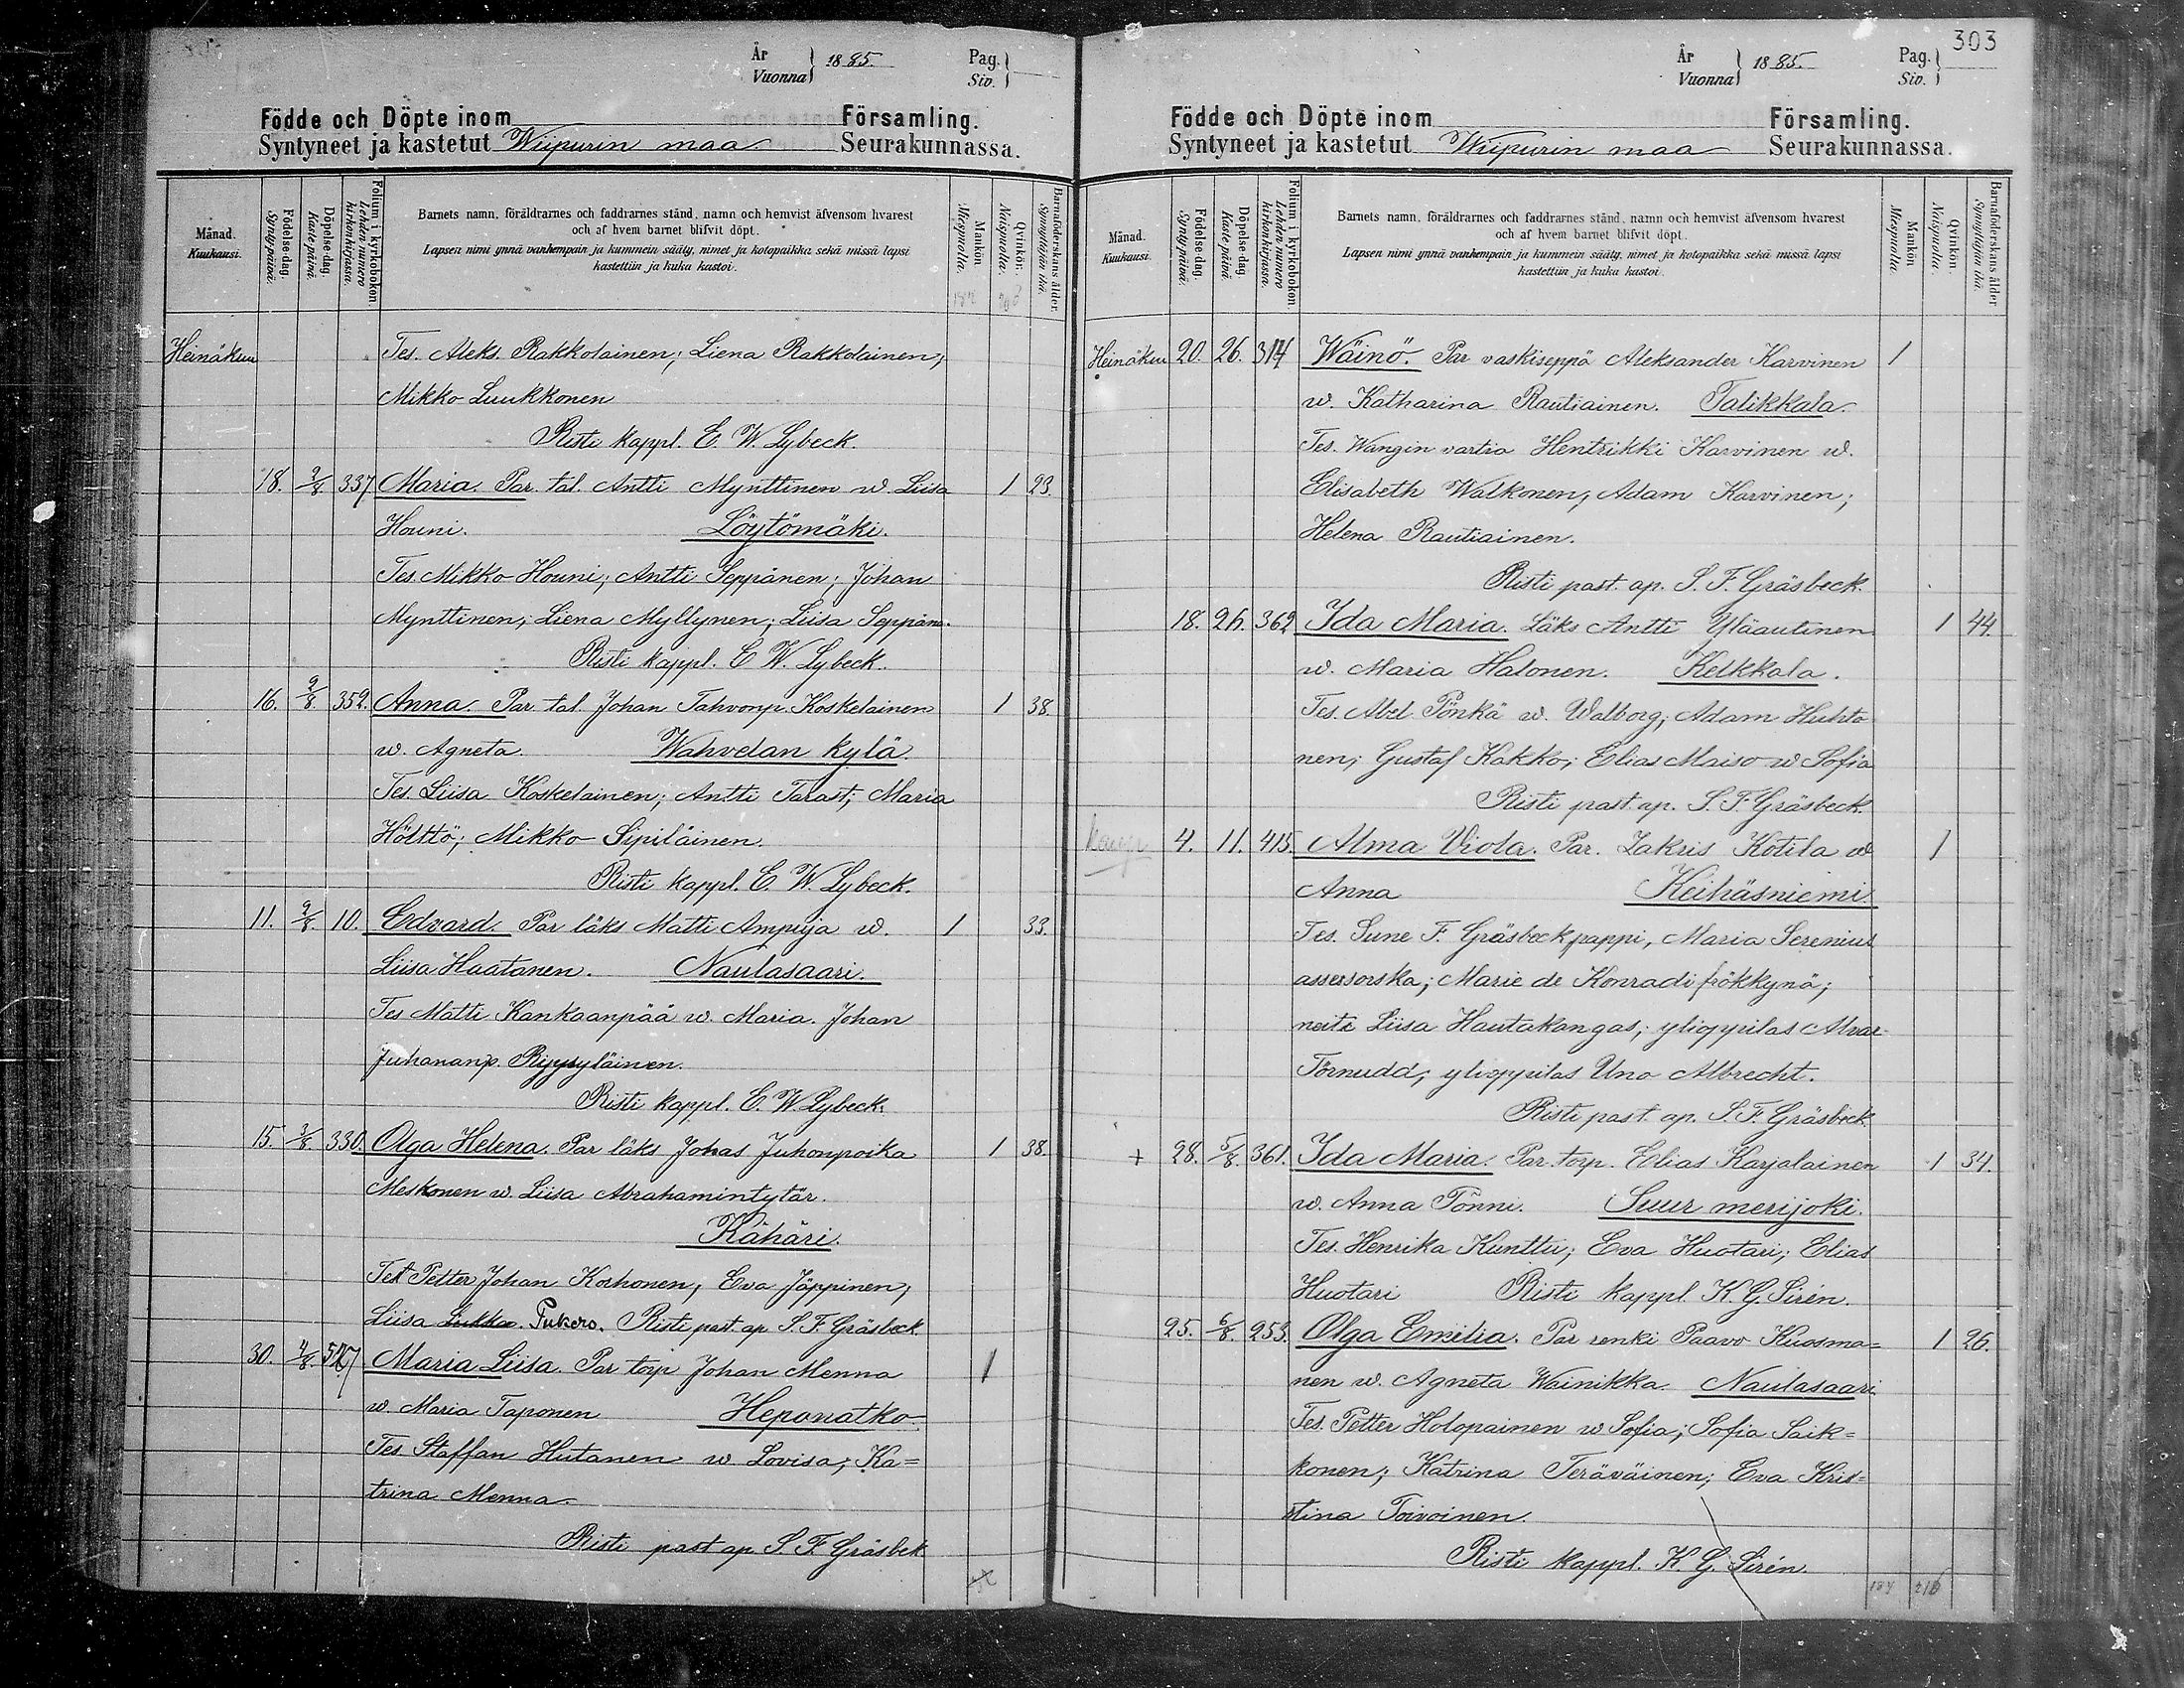 År
Vuonna } 1885.
Pag.
Siv. }
Födde och Döpte inom Församling.
Syntyneet ja kastetut Wiipurin maa Seurakunnassa.
Månad.
Kuukausi.
Födelse-dag.
Synty-päivä.
Döpelse-dag.
Kaste-päivä.
Folium i kyrkobokon.
Lehden numero kirkonkirjassa.
Barnets namn, föräldrarnes och faddrarnes stånd, namn och hemvist äfvensom hvarest
och af hvem barnet blifvit döpt.
Lapsen nimi ynnä vanhempain ja kummein sääty, nimet ja kotopaikka sekä missä lapsi
kastettiin ja kuka kastoi.
Mankön.
Miespuolta.
Qvinkön.
Naispuolta.
Barnaföderskans ålder.
Synnyttäjän ikä.
Heinäkuu Tes. Aleks. Rakkolainen; Liena Rakkolainen;
Mikko Luukkonen
Risti kappl. E. W. Lybeck.
18. 2/8 337 Maria. Par. tal. Antti Mynttinen w. Liisa 1 23.
Houni. Löytömäki.
Tes. Mikko Houni; Antti Seppänen; Johan
Mynttinen; Liena Myllynen; Liisa Seppäne.
Risti kappl. E W. Lybeck.
16. 2/8. 352. Anna. Par tal. Johan Tahvonp. Koskelainen 1 38.
w. Agneta. Wahvelan kylä.
Tes. Liisa Koskelainen; Antti Tarast; Maria
Hölttö; Mikko Sipiläinen.
Risti kappl. E. W. Lybeck.
11. 2/8. 10. Edvard. Par läks Matti Ampuja w. 1 33.
Liisa Haatanen. Naulasaari.
Tes Matti Kankaanpää w. Maria. Johan
Juhananp. Ryysyläinen.
Risti kappl. E. W. Lybeck.
15. 3/8. 330. Olga Helena. Par läks Johas Juhonpoika 1 38.
Meskonen w. Liisa Abrahamintytär.
Kähäri.
Tes Petter Johan Korhonen, Eva Jäppinen,
Liisa Lukko. Pukero. Risti past. ap S. F. Gräsbeck.
30. 4/8. 577 Maria Liisa. Par torp Johan Menna 1
w. Maria Taponen Heponatko.
Tes Staffan Hutanen w Lovisa; Ka=
trina Menna.
Risti past ap S. F Gräsbek
303
År
Vuonna } 1885.
Pag.
Siv. }
Födde och Döpte inom Församling.
Syntyneet ja kastetut Wiipurin maa Seurakunnassa.
Månad.
Kuukausi.
Födelse-dag.
Synty-päivä.
Döpelse-dag.
Kaste-päivä.
Folium i kyrkobokon.
Lehden numero kirkonkirjassa.
Barnets namn, föräldrarnes och faddrarnes stånd, namn och hemvist äfvensom hvarest
och af hvem barnet blifvit döpt.
Lapsen nimi ynnä vanhempain ja kummein sääty, nimet ja kotopaikka sekä missä lapsi
kastettiin ja kuka kastoi.
Mankön
Miespuolta.
Qvinkön.
Naispuolta.
Barnaföderskans ålder
Synnyttäjän ikä.
Heinäkuu 20. 26. 314 Wäinö. Par vaskiseppä Aleksander Karvinen 1
w. Katharina Rautiainen. Talikkala.
Tes. Wangin vartia Hentrikki Karvinen w.
Elisabeth Walkonen; Adam Karvinen;
Helena Rautiainen.
Risti past. ap. S. F. Gräsbeck.
18. 26. 362 Ida Maria. Läks Antti Yläautinen 1 44.
w. Maria Halonen. Kelkkala.
Tes. Abel Pönkä w. Walborg; Adam Huhta
nen; Gustaf Kakko; Elias Maiso w Sofia
Risti past. ap. S. F. Gräsbeck.
kaup 4. 11. 415. Alma Viola. Par. Zakris Kotila w 1
Anna Keihäsniemi.
Tes. Sune F. Gräsbeck pappi, Maria Serenius
assessorska; Marie de Konradi frökkynä;
neiti Liisa Hautakangas; ylioppilas Alvar
Törnudd; ylioppilas Uno Albrecht.
Risti past. ap. S. F. Gräsbeck.
+ 28. 5/8. 361. Ida Maria. Par. torp. Elias Karjalainen 1 34.
w. Anna Tönni. Suur merijoki.
Tes. Henrika Kunttu; Eva Huotari; Elias
Huotari Risti kappl. K. G. Sirén.
25. 6/8. 253. Olga Emilia. Par renki Paavo Kuosma= 1 26.
nen w. Agneta Wainikka. Naulasaari
Tes. Petter Holopainen w Sofia; Sofia Saik=
konen; Katrina Teräväinen; Eva Kris=
stina Toivoinen.
Risti kappl. K. G. Sirén.